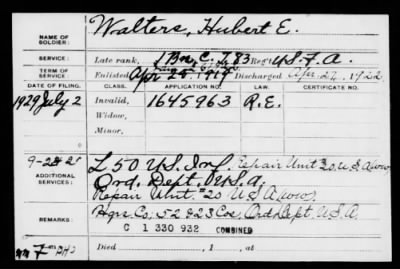 NAME OF SOLDIER: Walters, Hubert E.
SERVICE: Late rank, 1 Bn, C. 283 Reg't U.S.F.A.
TERM OF SERVICE: Enlisted Apr 25 1919 Discharged Apr. 24, 1922
DATE OF FILING. CLASS. APPLICATION NO. LAW. CERTIFICATE NO.
1929 July 2 Invalid, 1645963 R.E.
Widow,
Minor,
ADDITIONAL SERVICES: L 50 U.S. Inf. Repair Unit 320 U.S.A
Ord. Dept. U.S.A.
Repair Unit #20 U.S.A
REMARKS: Hqrs Co; 52 Ord Dept. U.S.A.
C 1 330 932 COMBINED
Died , 1 , at